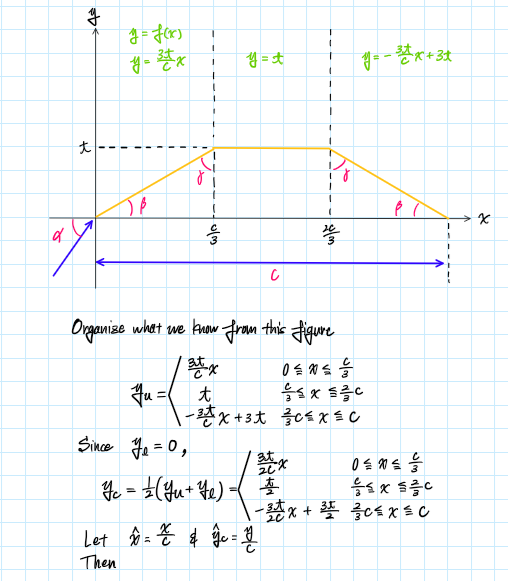 y
y = f(x)
y = 3t/c x
y = t
y = - 3t/c x + 3t
t
γ
γ
β
β
α
c/3
2c/3
x
c
Organize what we know from this figure
yu = { 3t/c x    0 ≤ x ≤ c/3
t    c/3 ≤ x ≤ 2/3 c
- 3t/c x + 3t    2/3 c ≤ x ≤ c
Since yl = 0,
yc = 1/2 (yu + yl) = { 3t/2c x    0 ≤ x ≤ c/3
t/2    c/3 ≤ x ≤ 2/3 c
- 3t/2c x + 3t/2    2/3 c ≤ x ≤ c
Let x̂ = x/c & ŷc = y/c
Then